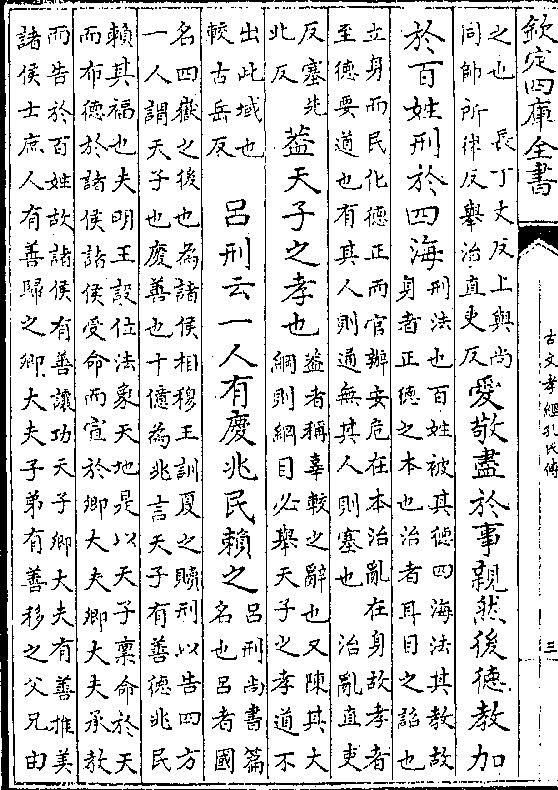 欽定四庫全書
古文孝經孔氏傳
三
之也 長丁丈反上與尚
同帥所律反舉治直吏反
愛敬盡於事親然後德教加
於百姓刑於四海
刑法也百姓被其德四海法其教故
身者正德之本也治者耳目之詔也
立身而民化德正而官辦安危在本治亂在身故孝者
至德要道也有其人則通無其人則塞也 治亂直吏
反塞先
北反
葢天子之孝也
葢者稱辜較之辭也又陳其大
綱則綱目必舉天子之孝道不
出此域也
較古岳反
呂刑云一人有慶兆民賴之
呂刑尚書篇
名也呂者國
名四嶽之後也為諸侯相穆王訓夏之贖刑以告四方
一人謂天子也慶善也十億為兆言天子有善德兆民
賴其福也夫明王設位法象天地是以天子稟命於天
而布德於諸侯諸侯受命而宣於卿大夫卿大夫承教
而告於百姓故諸侯有善讓功天子卿大夫有善推美
諸侯士庶人有善歸之卿大夫子弟有善移之父兄由